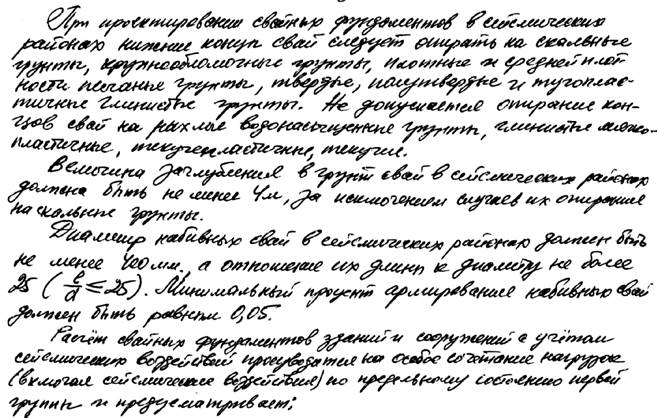 При проектировании свайных фундаментов в сейсмических
районах нижние концы свай следует опирать на скальные
грунты, крупнообломочные грунты, плотные и средней плот
ности песчаные грунты, твёрдые, полутвердые и тугоплас-
тичные глинистые грунты. Не допускается опирание кон-
цов свай на рыхлые водонасыщенные грунты, глинистые мягко-
пластичные, текучепластичные, текучие.
Величина заглубления в грунт свай в сейсмических районах
должна быть не менее 4м, за исключением случаев их опирания
на скальные грунты.
Диаметр набивных свай в сейсмических районах должен быть
не менее 400 мм, а отношение их длины к диаметру не более
25 (l/d ≤ 25). Минимальный процент армирования набивных свай
должен быть равным 0,05.
Расчёт свайных фундаментов зданий и сооружений с учётом
сейсмических воздействий производится на особое сочетание нагрузок
(включая сейсмические воздействия) по предельному состоянию первой
группы и предусматривает: